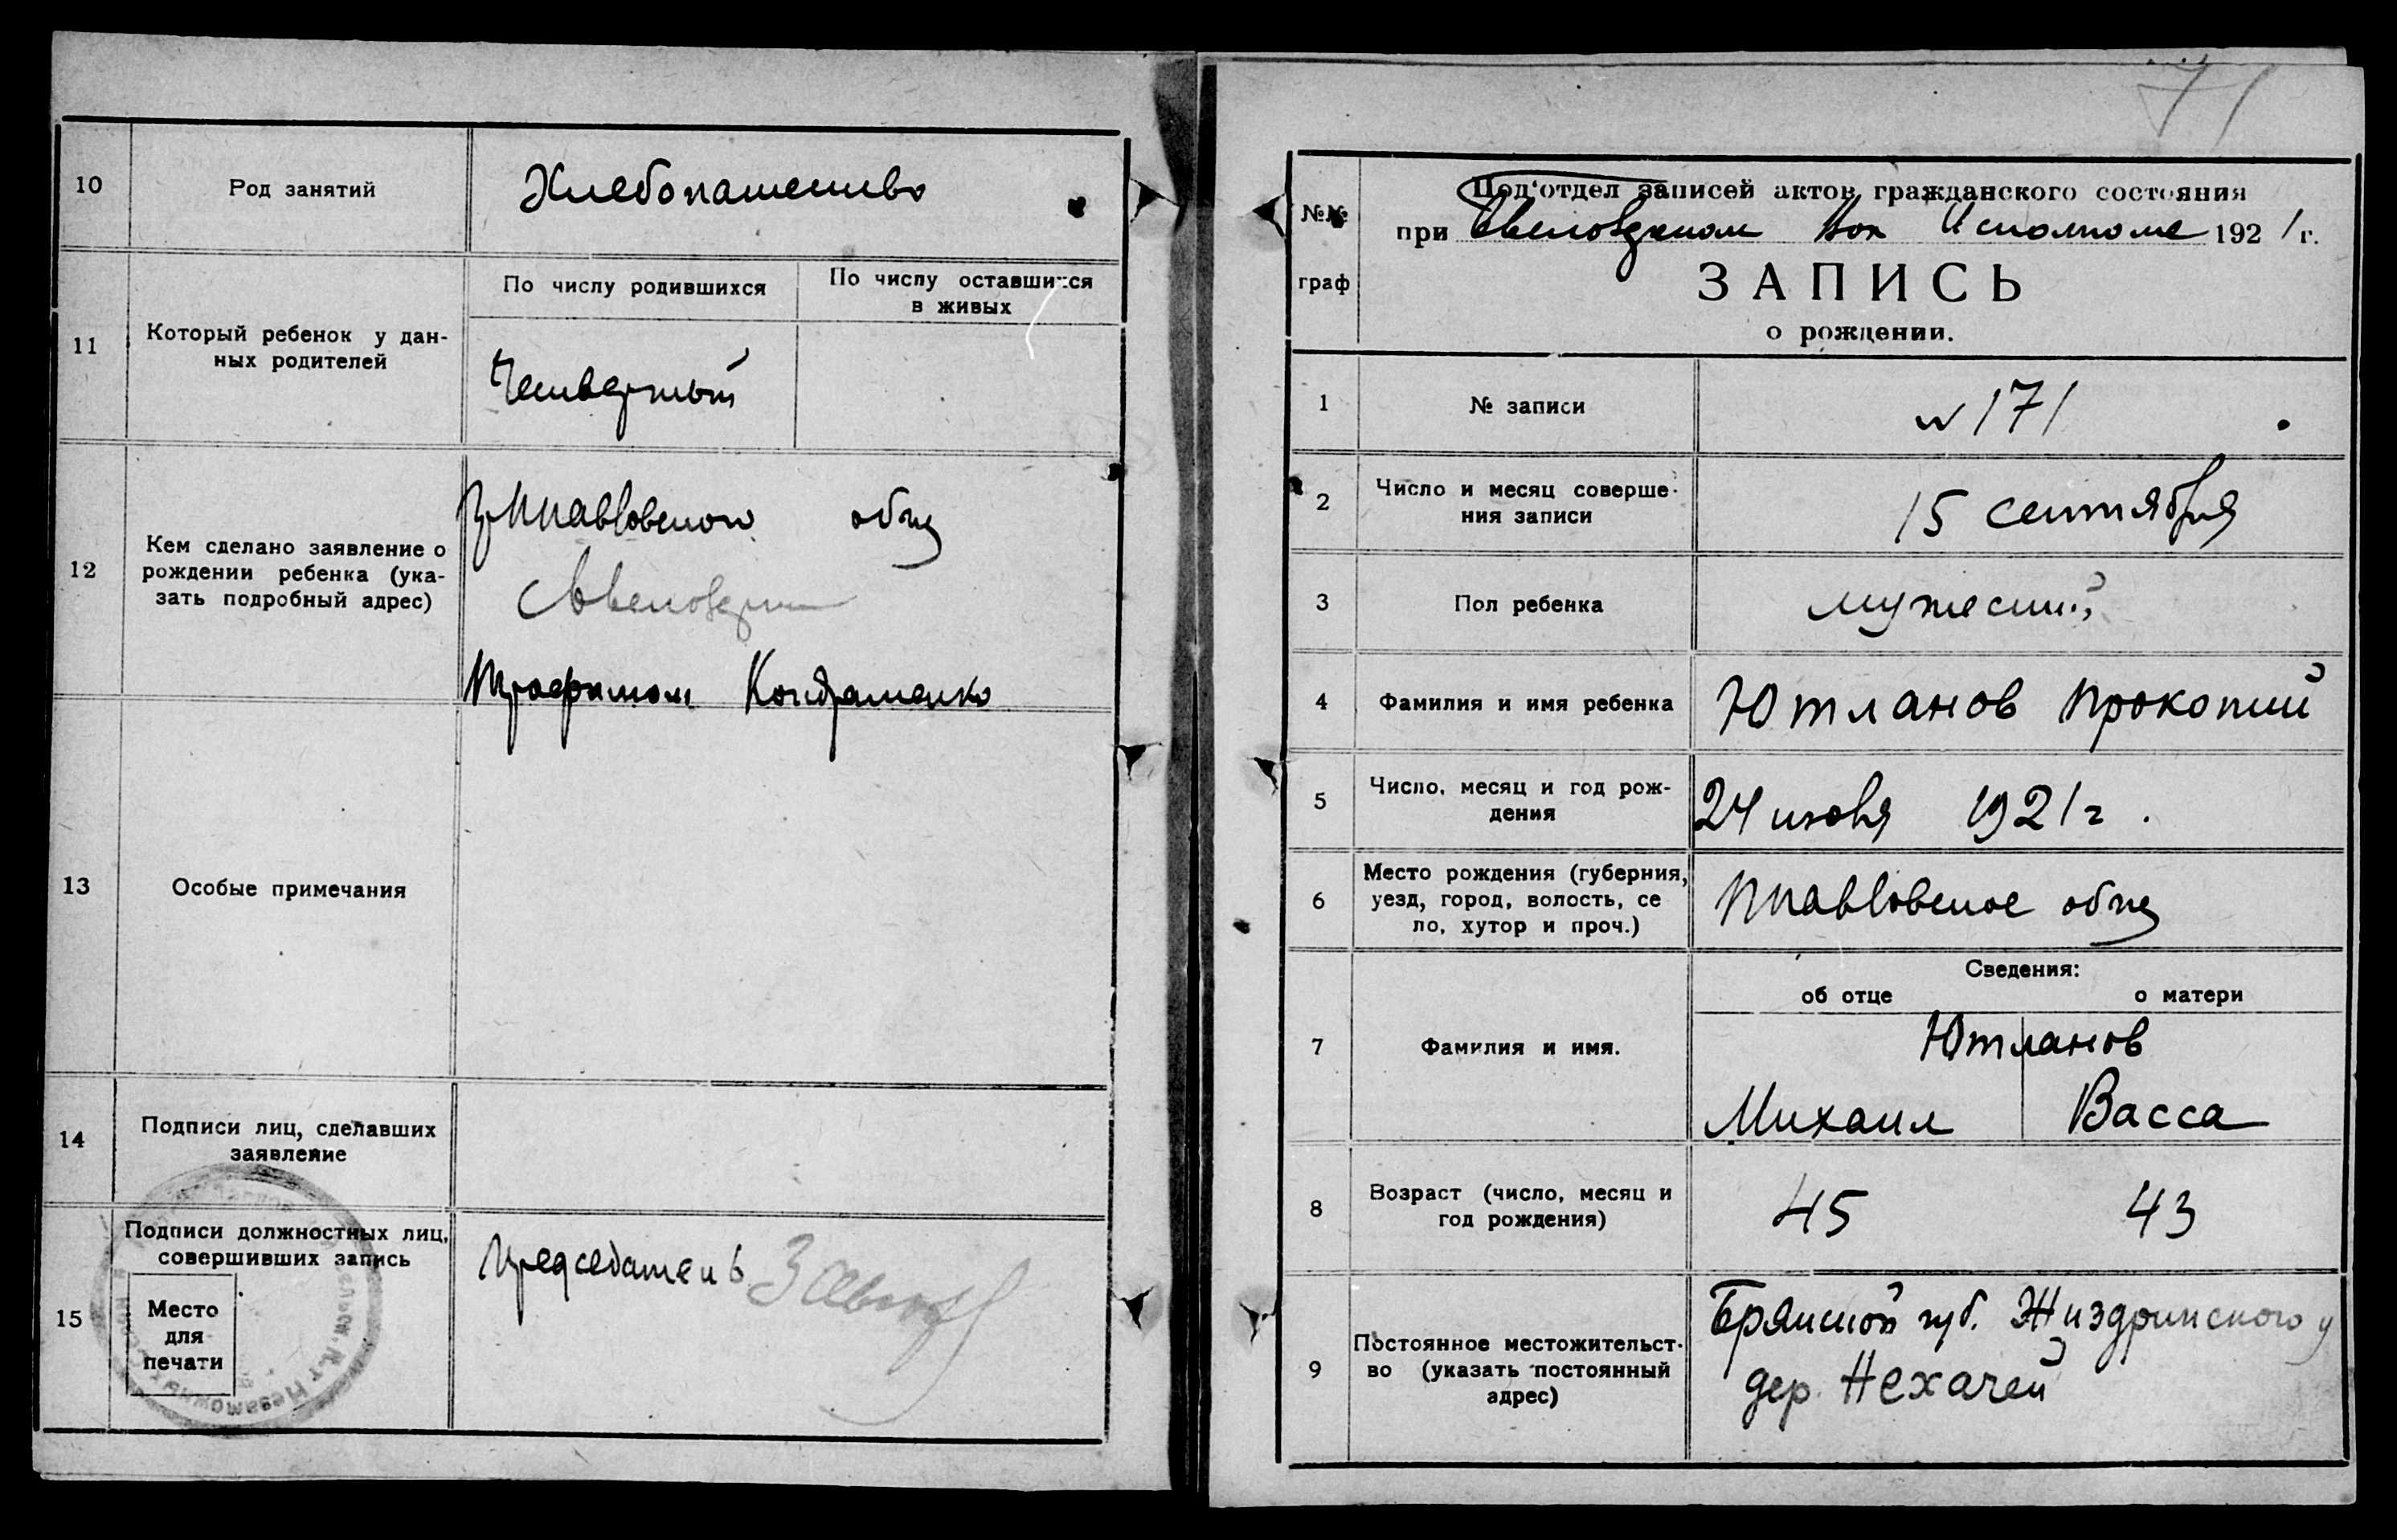 10
Род занятий
Хлебопашество
11
Который ребенок у дан-
ных родителей
По числу родившихся
По числу оставшихся
в живых
Четвертый
12
Кем сделано заявление о
рождении ребенка (ука-
зать подробный адрес)
обще
Трофимом Кондратенко
13
Особые примечания
14
Подписи лиц, сделавших
заявление
15
Подписи должностных лиц,
совершивших запись
Место
для
печати
Председатель
71
№№
граф
Под'отдел записей актов гражданского состояния
при Вол Исполкоме 1921 г.
ЗАПИСЬ
о рождении.
1
№ записи
№ 171
2
Число и месяц соверше-
ния записи
15 сентября
3
Пол ребенка
мужеский
4
Фамилия и имя ребенка
Ютланов Прокопий
5
Число, месяц и год рож-
дения
24 1921 г.
6
Место рождения (губерния,
уезд, город, волость, се
ло, хутор и проч.)
обще
7
Фамилия и имя.
Сведения:
об отце
о матери
Ютланов
Михаил
Васса
8
Возраст (число, месяц и
год рождения)
45
43
9
Постоянное местожительст-
во (указать постоянный
адрес)
Брянской губ. Жиздринского у
дер. Нехачей